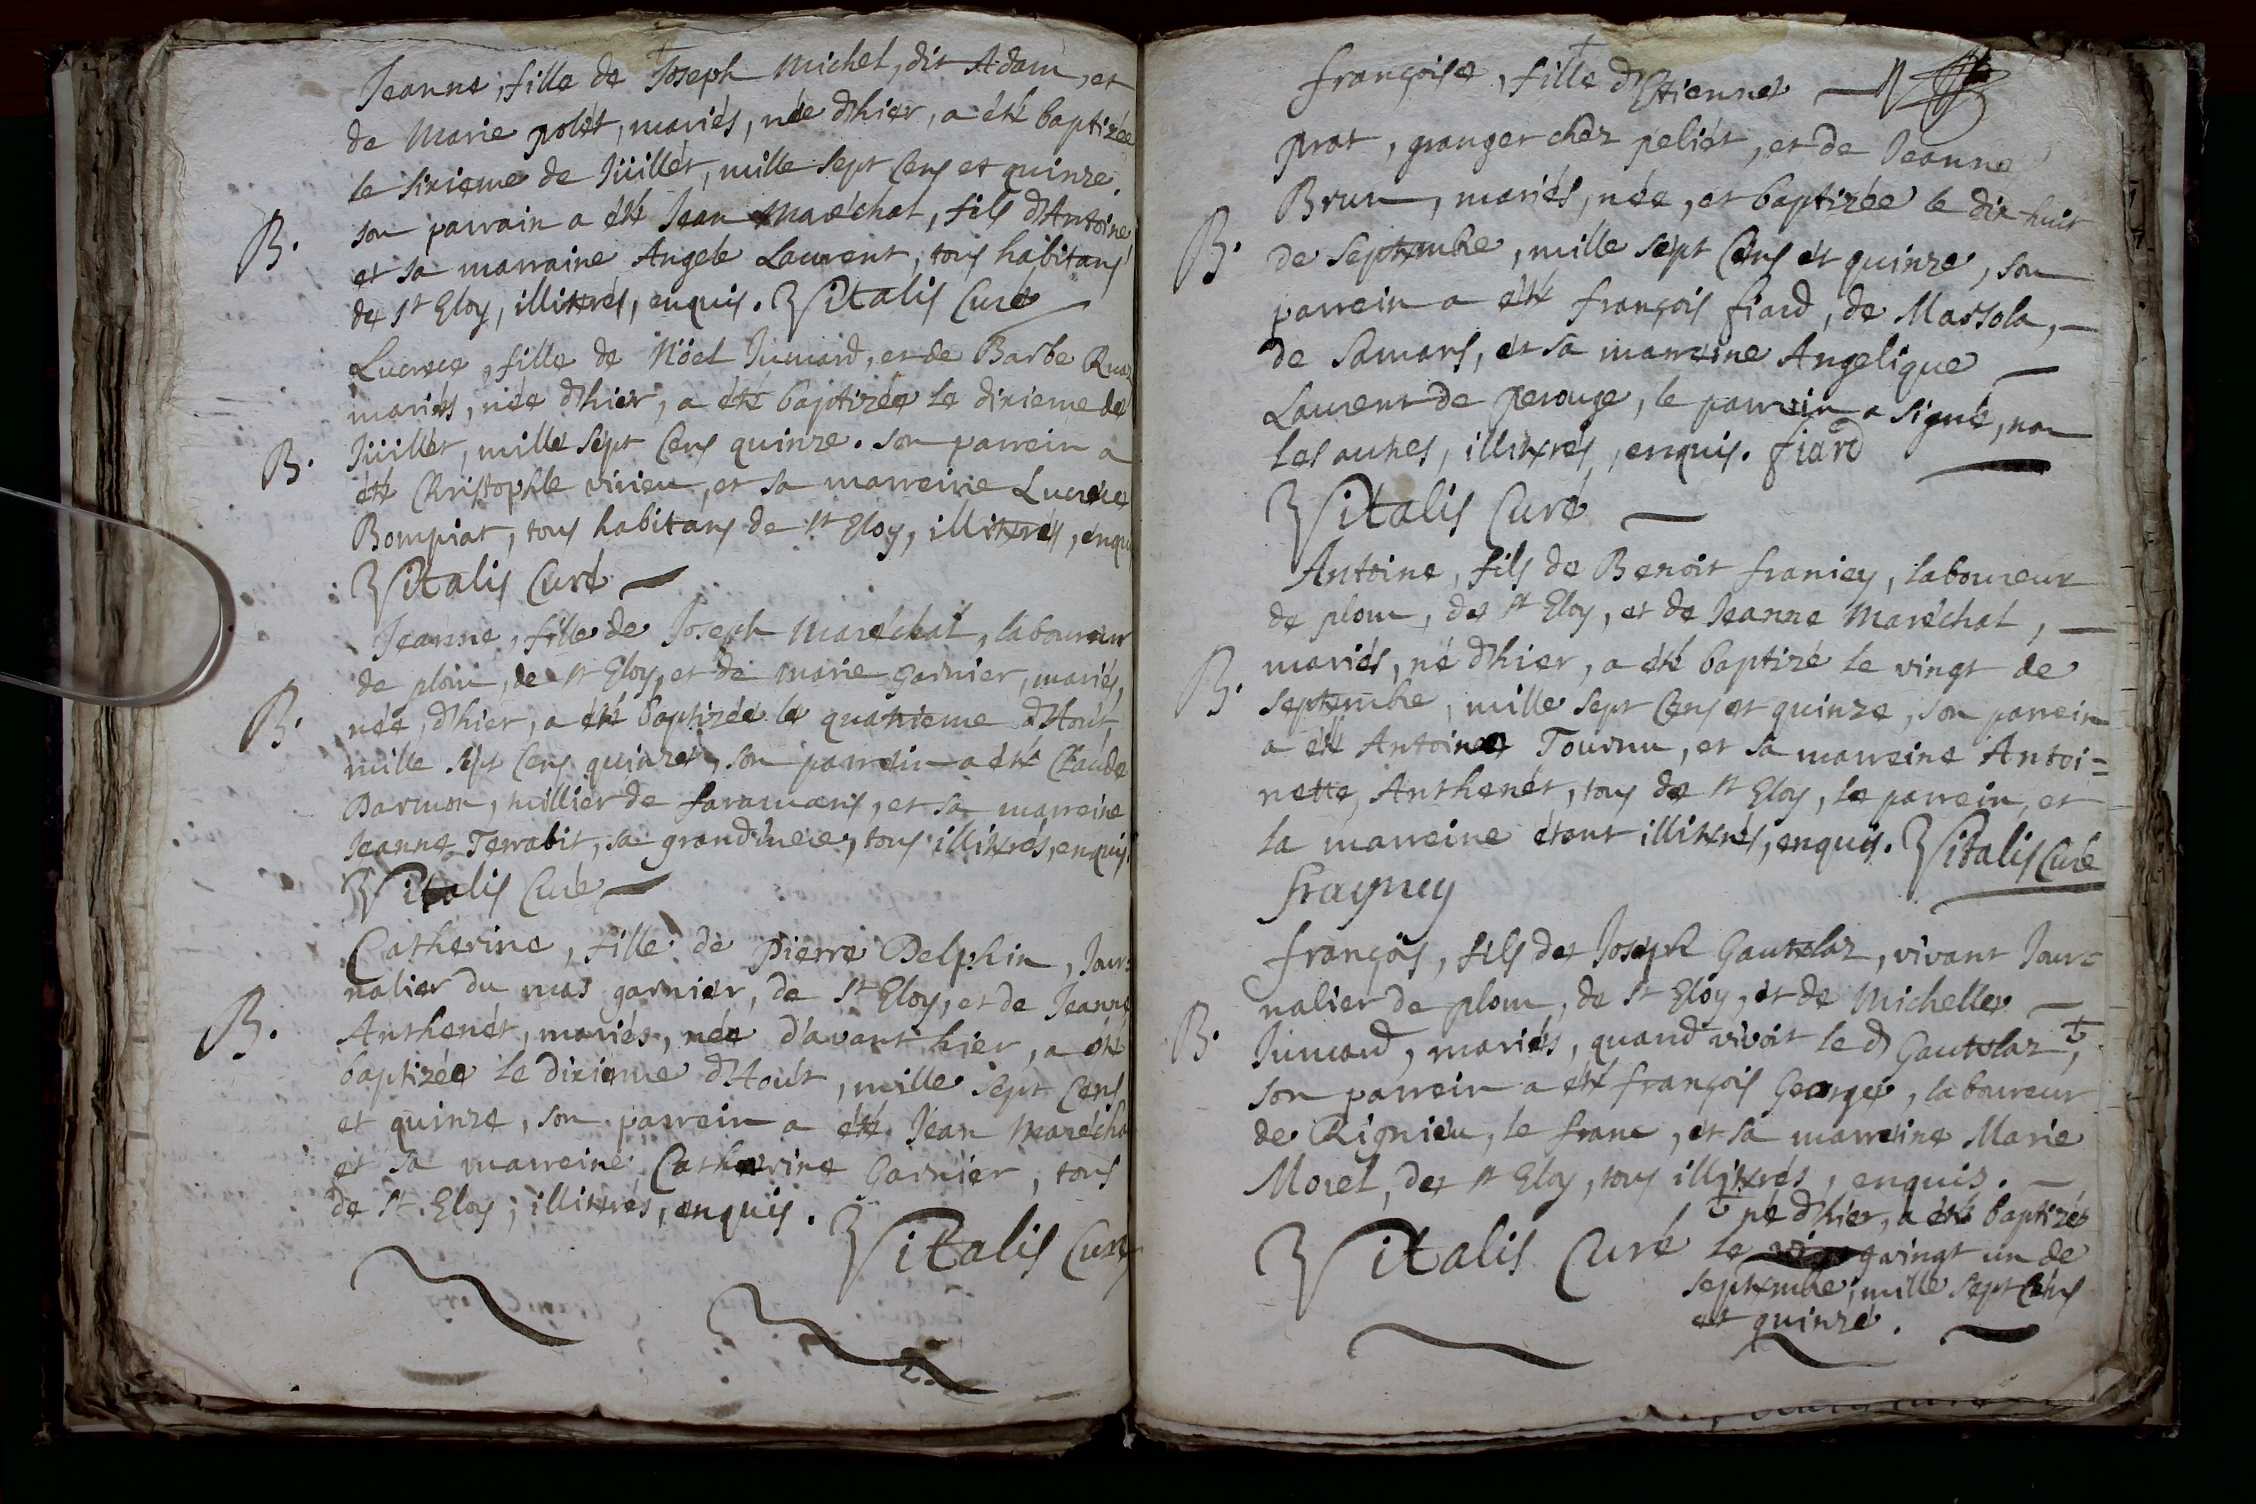 Jeanne, fille de Joseph Michel, dit Adam, et
de Marie polét, mariés, née d'hier, a été baptizée
le sixieme de Jüillét, mille sept Cens et quinze.
B. son parrain a été Jean Maréchal, fils d'Antoine
et sa marraine Angele Laurent, tous habitans
de St Eloy, illitérés, enquis. Vitalis Curé
Lucrece, fille de Nöel Jumard, et de Barbe
mariés, née d'hier, a été baptizée le dixieme de
B. Jüillét, mille sept Cens quinze. son parrein a
été Christophle virieu, et sa marreine Lucrece
Bompiat, tous habitans de St Eloy, illitérés, enquis
Vitalis Curé
Jeanne, fille de Joseph Maréchal, laboureur
de plom, de St Eloy, et de Marie Garnier, mariés,
B. née d'hier, a été baptizée le quatrieme d'Août,
mille sept Cens quinze, son parrein a été Claude
Darmon, millier de faramans, et sa marreine
Jeanne Terrabit, sa grand'mere, tous illitérés, enquis.
Vitalis Curé
Catherine, fille de Pierre Delphin, Jour=
nalier du mas garnier, de St Eloy, et de Jeanne
B. Anthenét, mariés, née d'avant hier, a été
baptizée le dixieme d'Août, mille sept Cens
et quinze, son parrein a été Jean Marécha
et sa marreine Catherine Garnier, tous
de St. Eloy, illitérés, enquis.
Vitalis Curé
françoise, fille d'Etienne
prat, granger chez peliét, et de Jeanne
Brun, mariés, née, et baptizée le dix huit
B. de Septembre, mille sept Cens et quinze, son
parrein a été françois fiard, de Massola,
de Samans, et sa marreine Angelique
Laurent de perouge, le parrein a signé, non
les autres, illitérés, enquis. fiard
Vitalis Curé
Antoine, fils de Benoit franiey, laboureur
de plom, de St Eloy, et de Jeanne Maréchal,
B. mariés, né d'hier, a été baptizé le vingt de
septembre, mille sept Cens et quinze, son parrein
a été Antoine Tournu, et sa marreine Antoi=
nette Anthenét, tous de St Eloy, le parrein, et
la marreine étant illitérés, enquis. Vitalis Curé
frayney
françois, fils de Joseph Gautelaz, vivant Jour=
nalier de plom, de St Eloy, et de Michelle
B. Jumard, mariés, quand vivoit le d Gautelaz,
son parrein a été françois George, laboureur
de Rignieu, le franc, et sa marreine Marie
Morel, de St Eloy, tous illitérés, enquis.
né d'hier, a été baptizé
Vitalis Curé le vingt un de
septembre, mille sept Cens
et quinze.